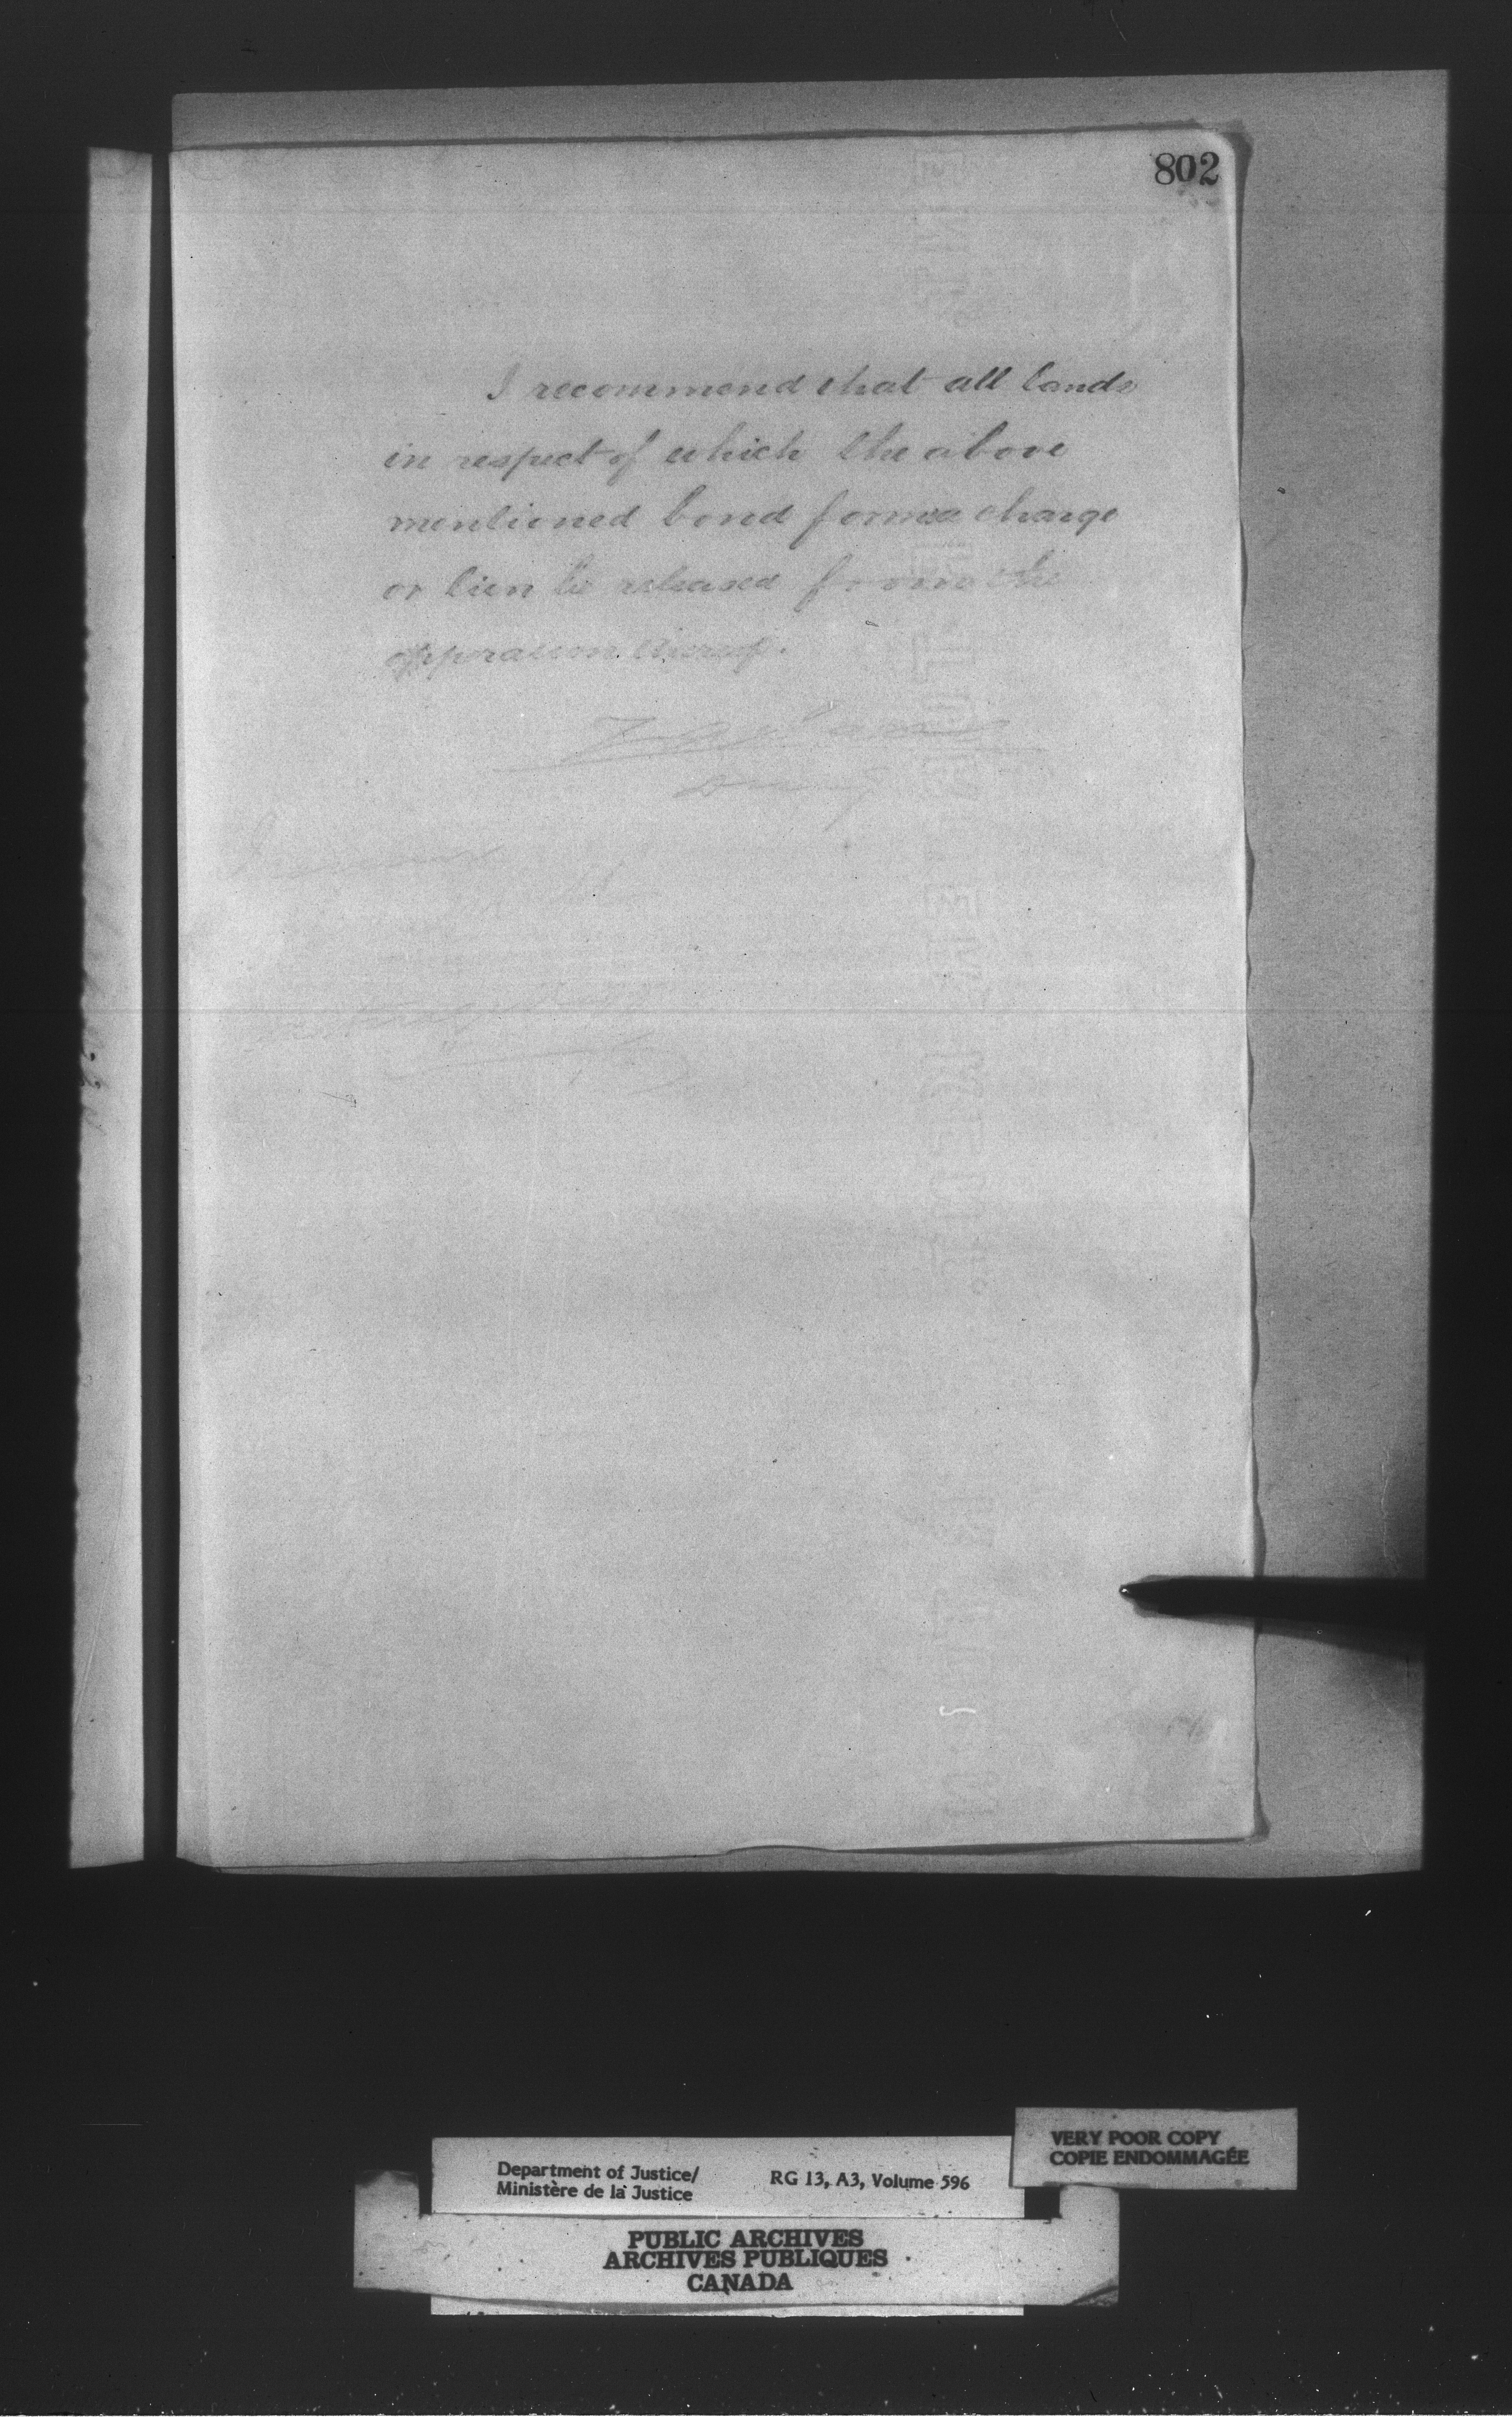 802
I recommend that all lands
in respect of which the above
mentioned bond forms a charge
or lien be released from the
opperation thereof.
VERY POOR COPY
COPIE ENDOMMAGÉE
Department of Justice/
Ministère de la Justice
RG 13, A3, Volume 596
PUBLIC ARCHIVES
ARCHIVES PUBLIQUES
CANADA